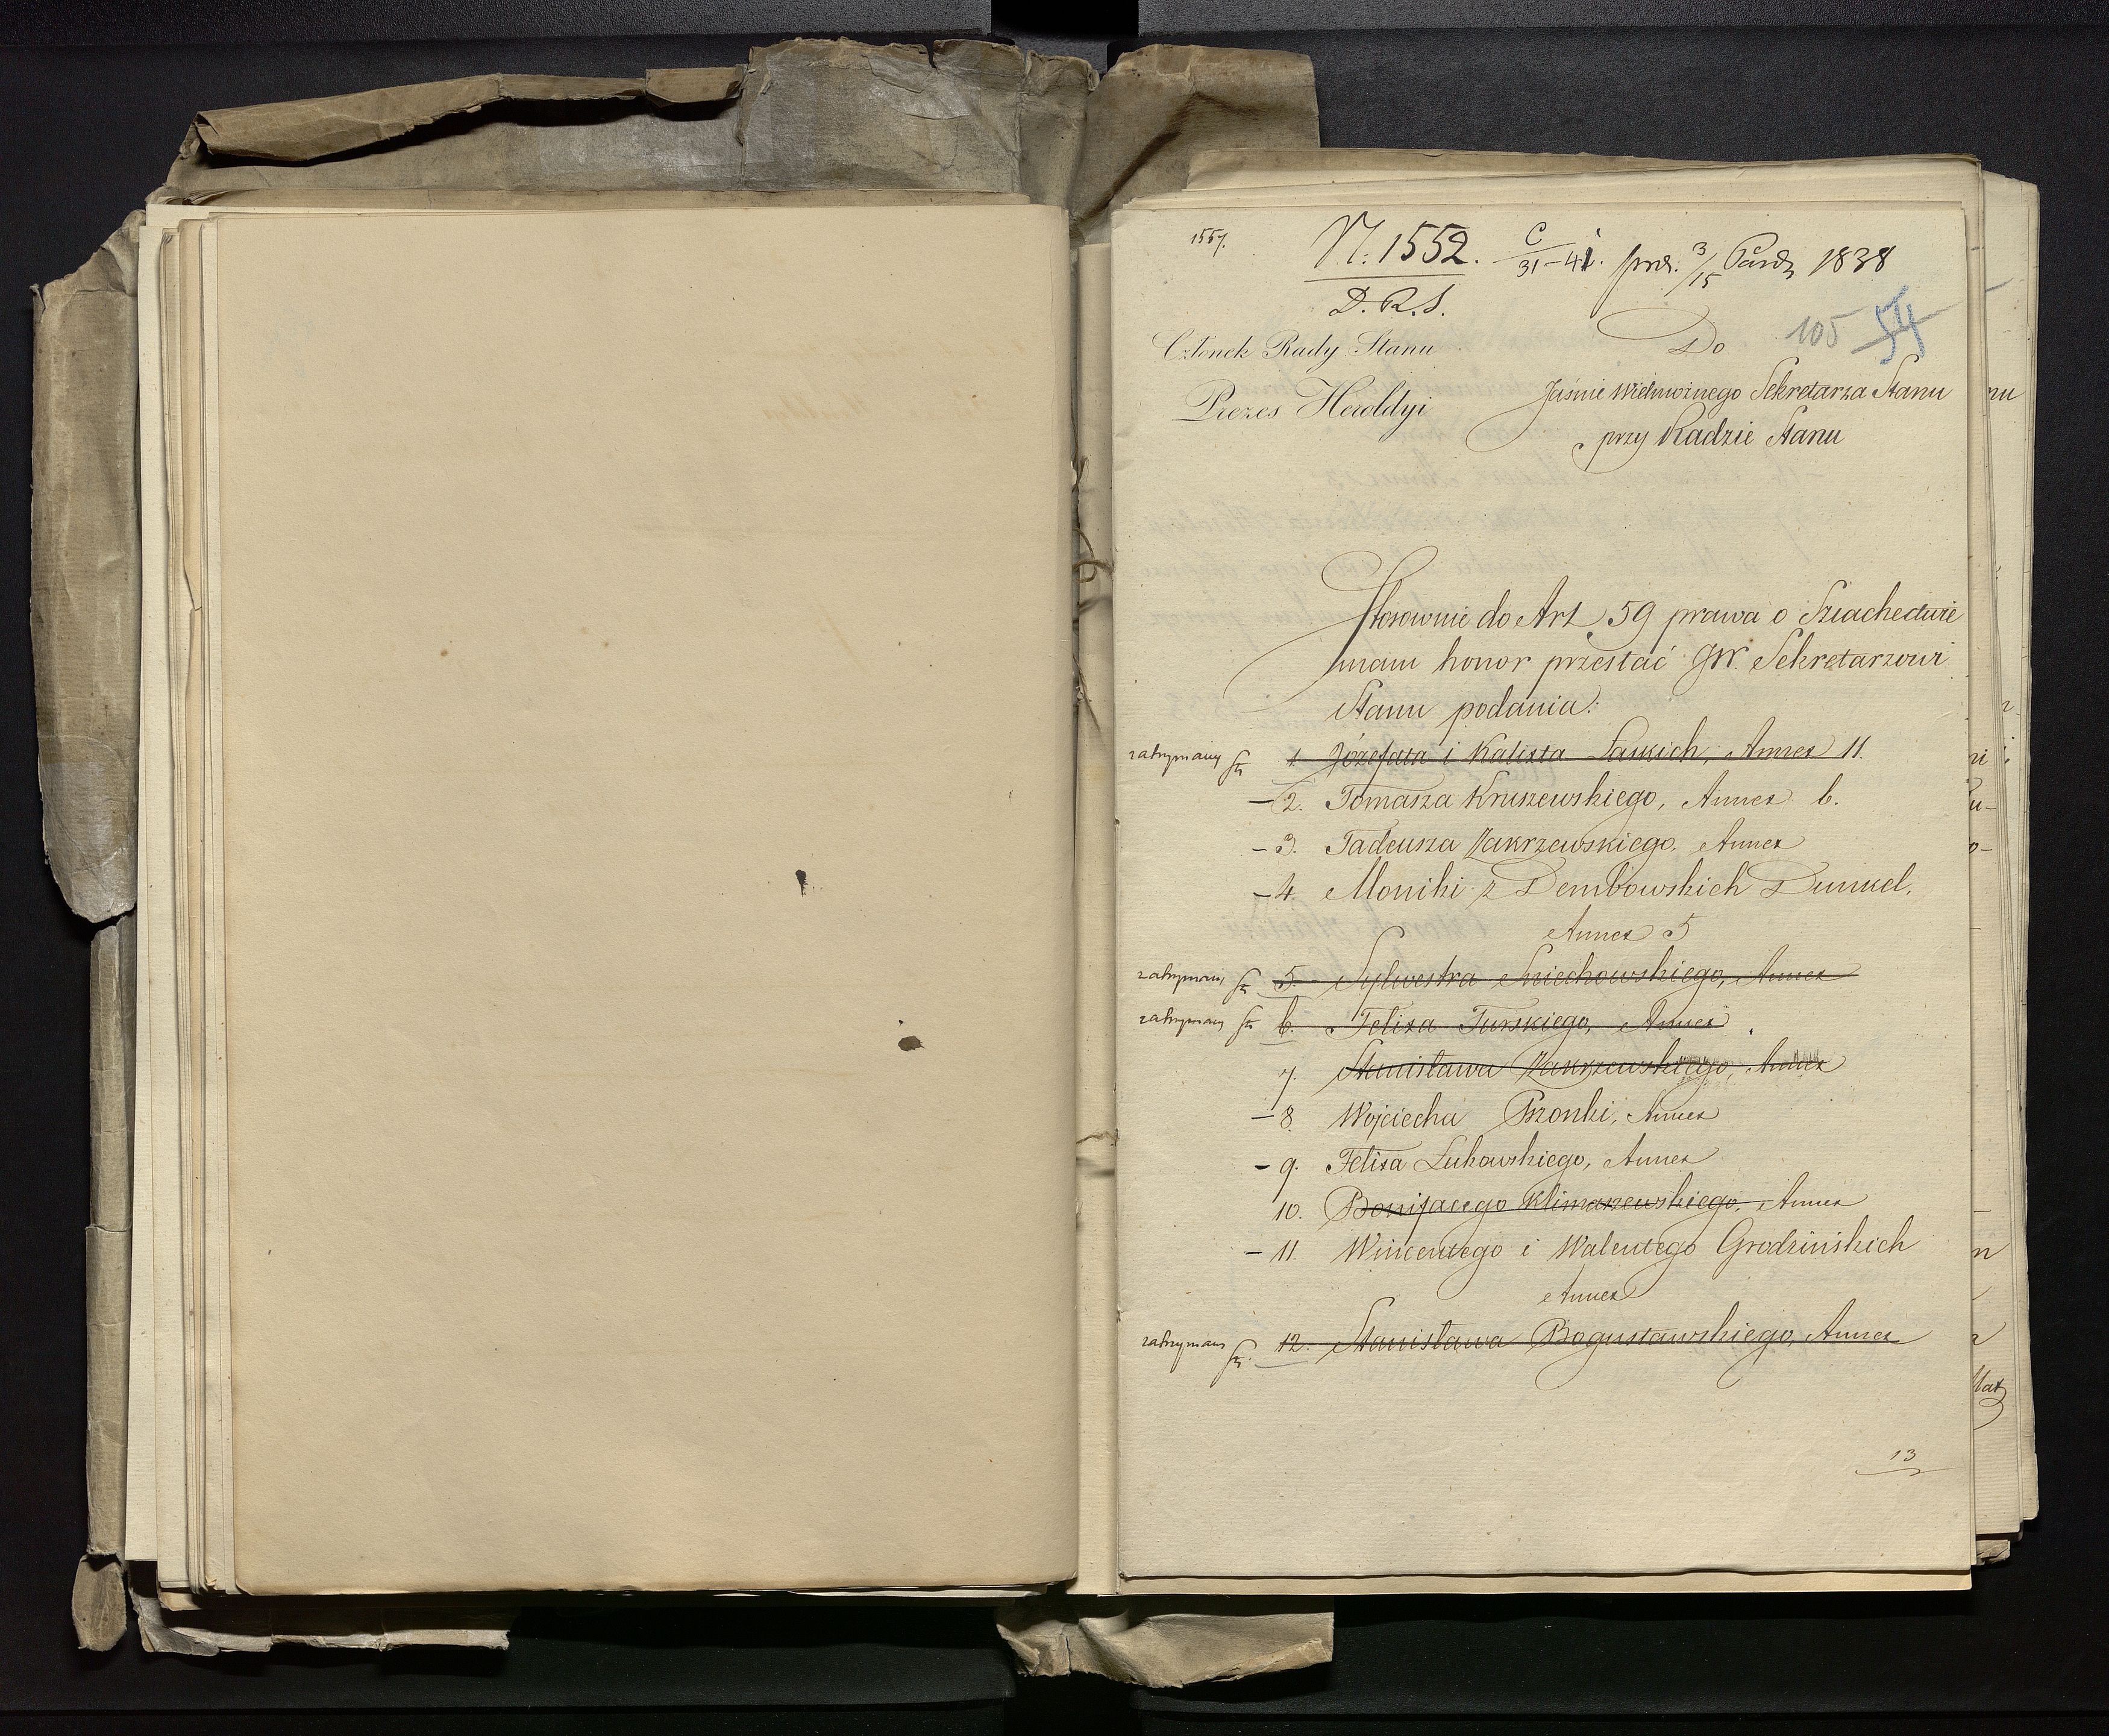 1557.
N. 1552. C/31-41. prd. 3/15 Paźdz 1838
D. R. S.
Do 105 54
Członek Rady Stanu
Prezes Heroldyi
Jaśnie Wielmożnego Sekretarza Stanu
przy Radzie Stanu
Stosownie do Art 59 prawa o Szlachectwie
mam honor przesłać JW. Sekretarzowi
Stanu podania:
zatrzymany 1. Józefata i Kalixta Annex 11.
- 2. Tomasza Kruszewskiego, Annex 6.
- 3. Tadeusza Zakrzewskiego, Annex
- 4. Moniki z Dembowskich Dunkel,
Annex 5
zatrzymany 5. Sylwestra Śniechowskiego, Annex
zatrzymany 6. Felixa Turskiego, Annex
7. Stanisława Zakrzewskiego, Annex
- 8. Wojciecha Bronki, Annex
- 9. Felixa Łukowskiego, Annex
10. Bonifacego Klimaszewskiego, Annex
- 11. Wincentego i Walentego Grodzińskich
Annex
zatrzymany 12. Stanisława Bogusławskiego, Annex
13